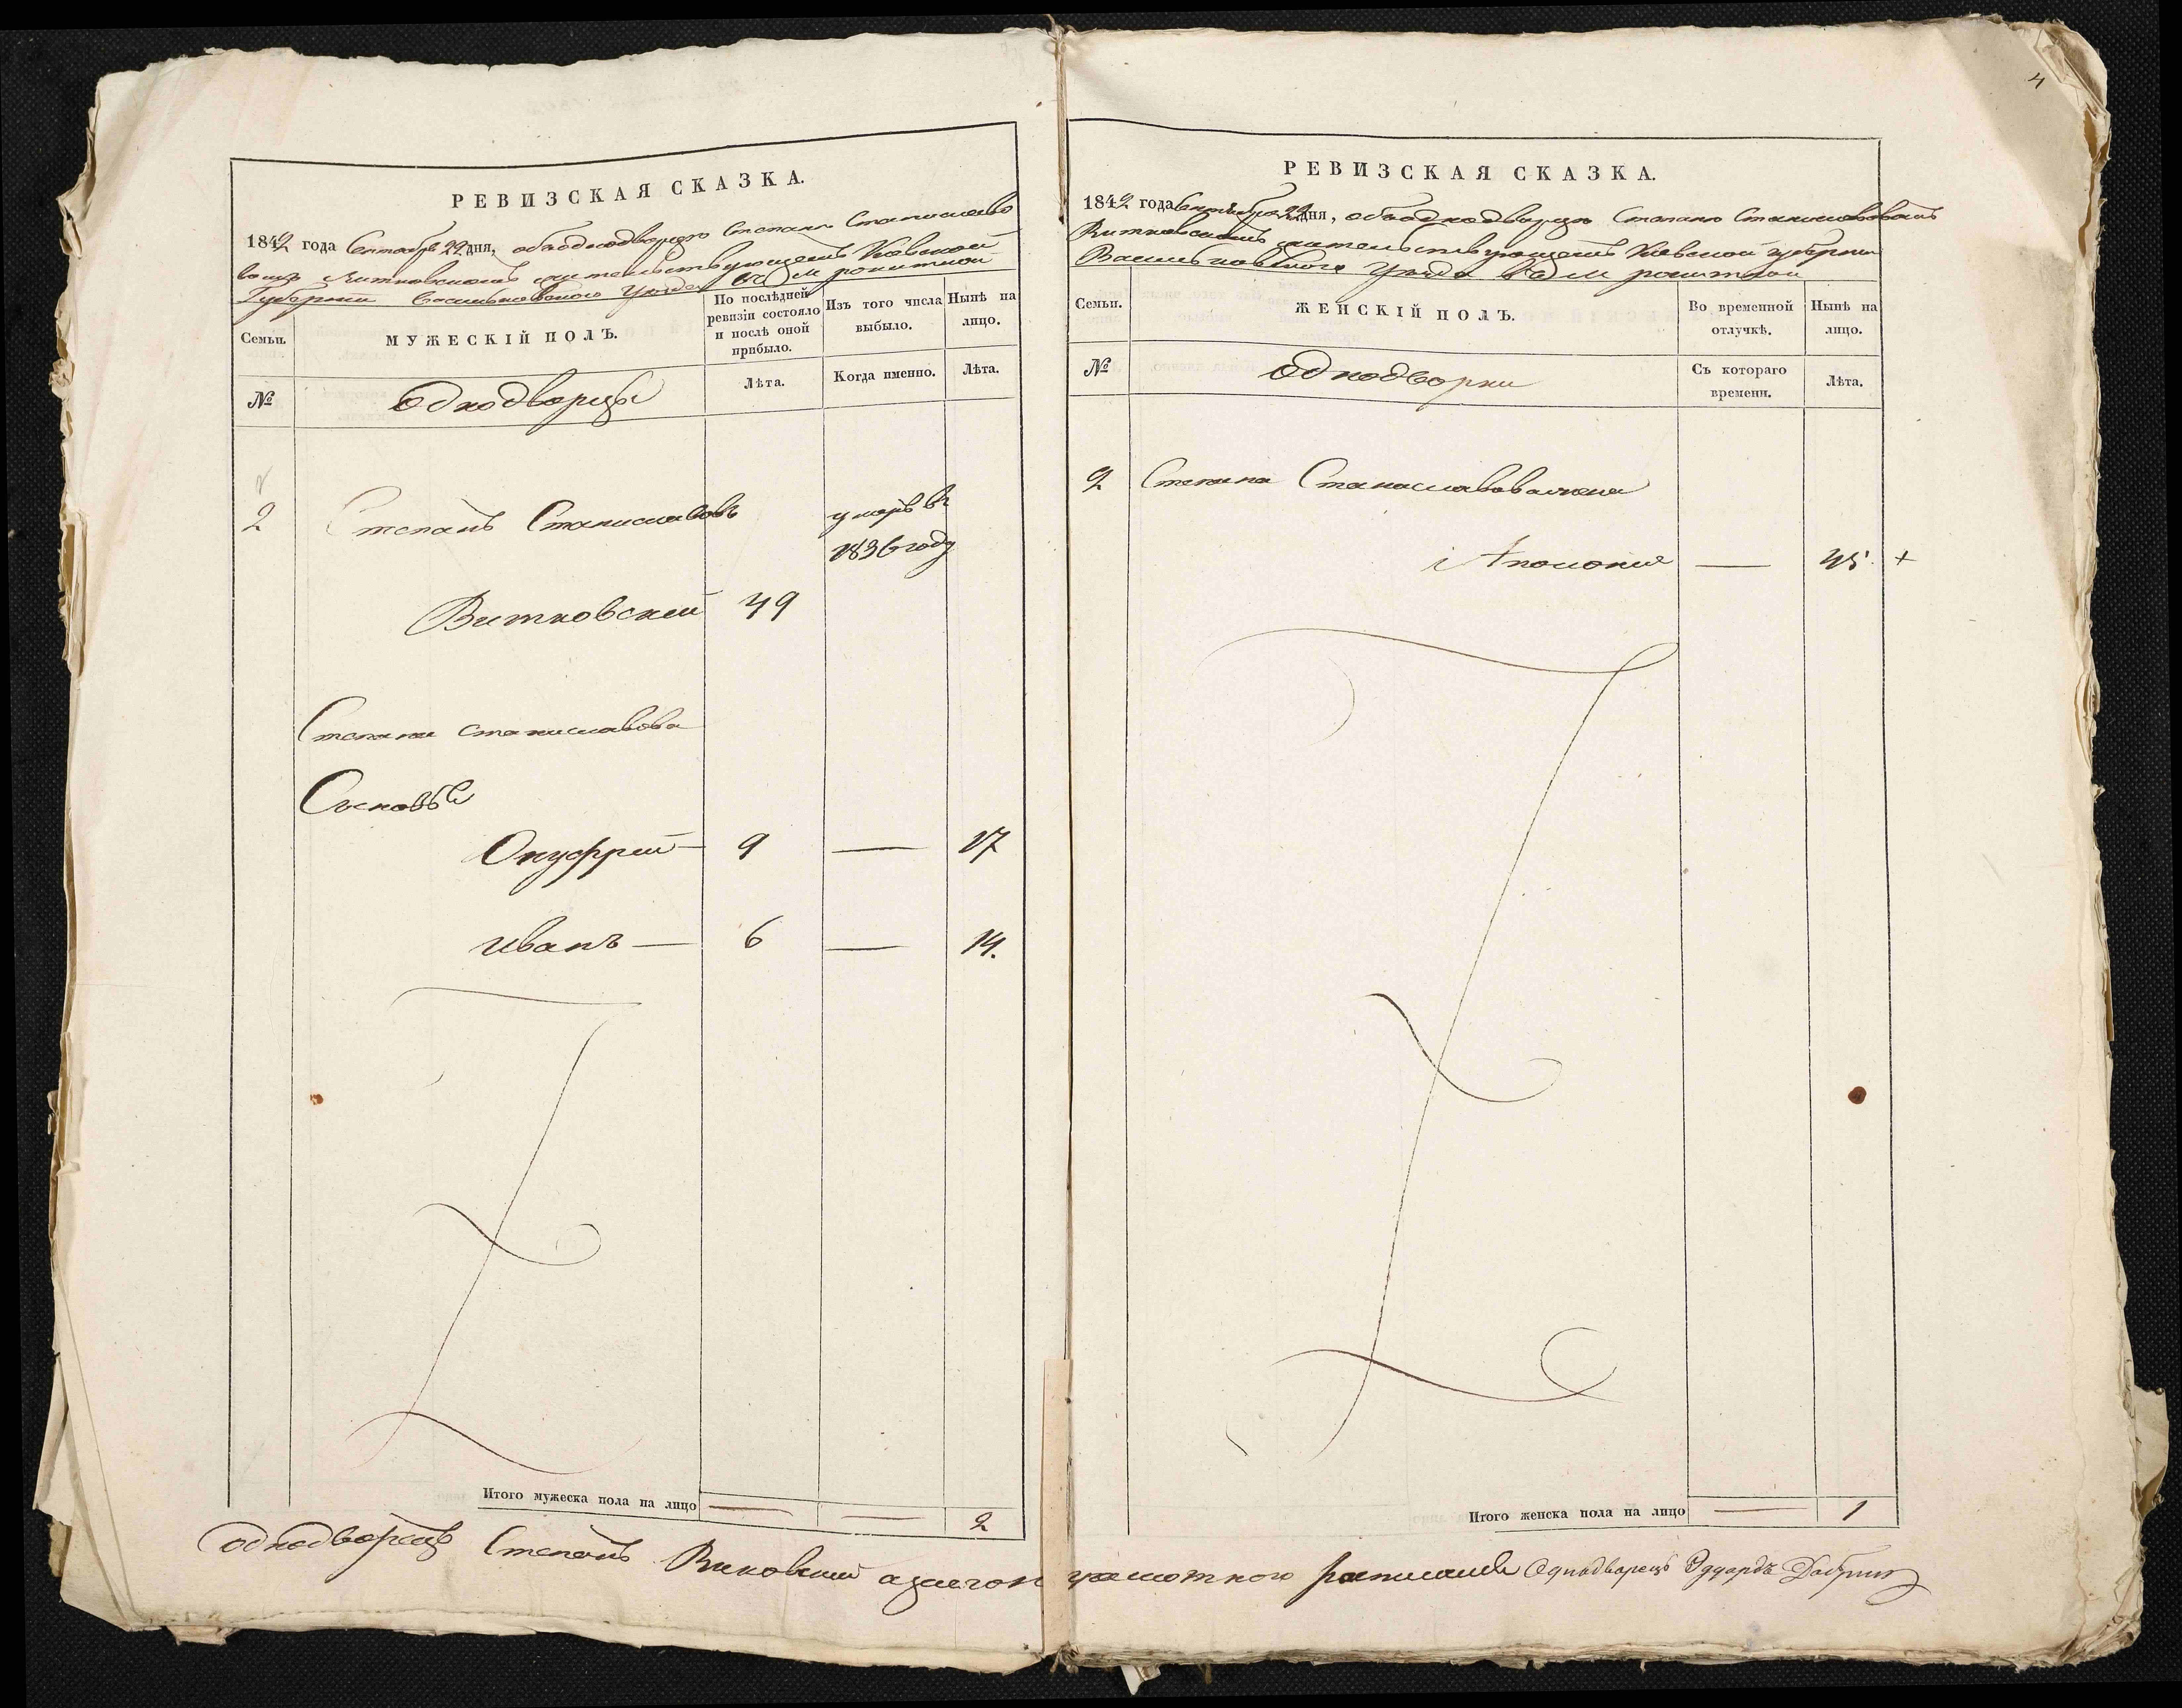 4
РЕВИЗСКАЯ СКАЗКА.
1842 года Сентября 22 дня, объ однодворце Степане Станиславо
вомъ Витковскомъ жительствующемъ Киевской
Губернии Васильковского Уезда въ м рокитной
Семьи.
МУЖЕСКІЙ ПОЛЪ.
По послѣдней
ревизіи состояло
и послѣ оной
прибыло.
Изъ того числа
выбыло.
Нынѣ на
лицо.
№
Однодворцы
Лѣта.
Когда именно.
Лѣта.
2 Степанъ Станиславовъ умеръ въ
1836 году
Витковский 49
Степана Станиславова
Сыновья
Онуфрий — 9 — 17
Иванъ — 6 — 14.
Итого мужеска пола на лицо — — 2
РЕВИЗСКАЯ СКАЗКА.
1842 года Сентября 22 дня, объ однодворце Степане Станиславовомъ
Витковскомъ жительствующемъ Киевской губернии
Васильковского Уезда въ м рокитной
Семьи.
ЖЕНСКІЙ ПОЛЪ.
Во временной
отлучкѣ.
Нынѣ на
лицо.
№
Однодворки
Съ котораго
времени.
Лѣта.
2 Степана Станиславова жена
Аполония — 45. +
Итого женска пола на лицо — 1
однодворецъ Степанъ Виковский а за него не грамотного росписался Однодворецъ Эдуардъ